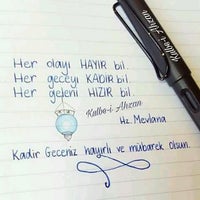 Her olayı HAYIR bil.
Her geceyi KADİR bil.
Her geleni HIZIR bil.
Kalbe-i Ahzan
Hz. Mevlana
Kadir Geceniz hayırlı ve mübarek olsun.
Kalbe-i Ahzan